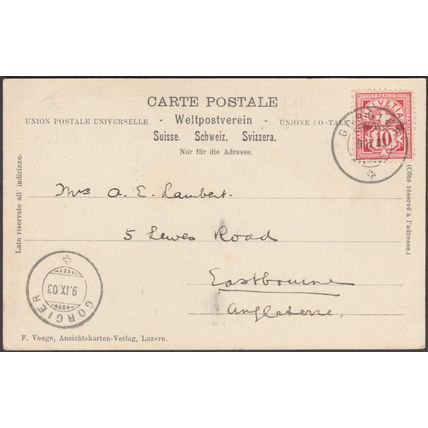 CARTE POSTALE
UNION POSTALE UNIVERSELLE - Weltpostverein - UNIONE PO TALE
Suisse. Schweiz. Svizzera.
Nur für die Adresse.
HELVETIA
10
Mrs A. E. Lambert.
5 Lewes Road
Eastbourne
Angleterre.
Lato riservato all' indirizzo.
(Côté réservé à l'adresse.)
GORGIER
9.IX.03
F. Voege, Ansichtskarten-Verlag, Luzern.